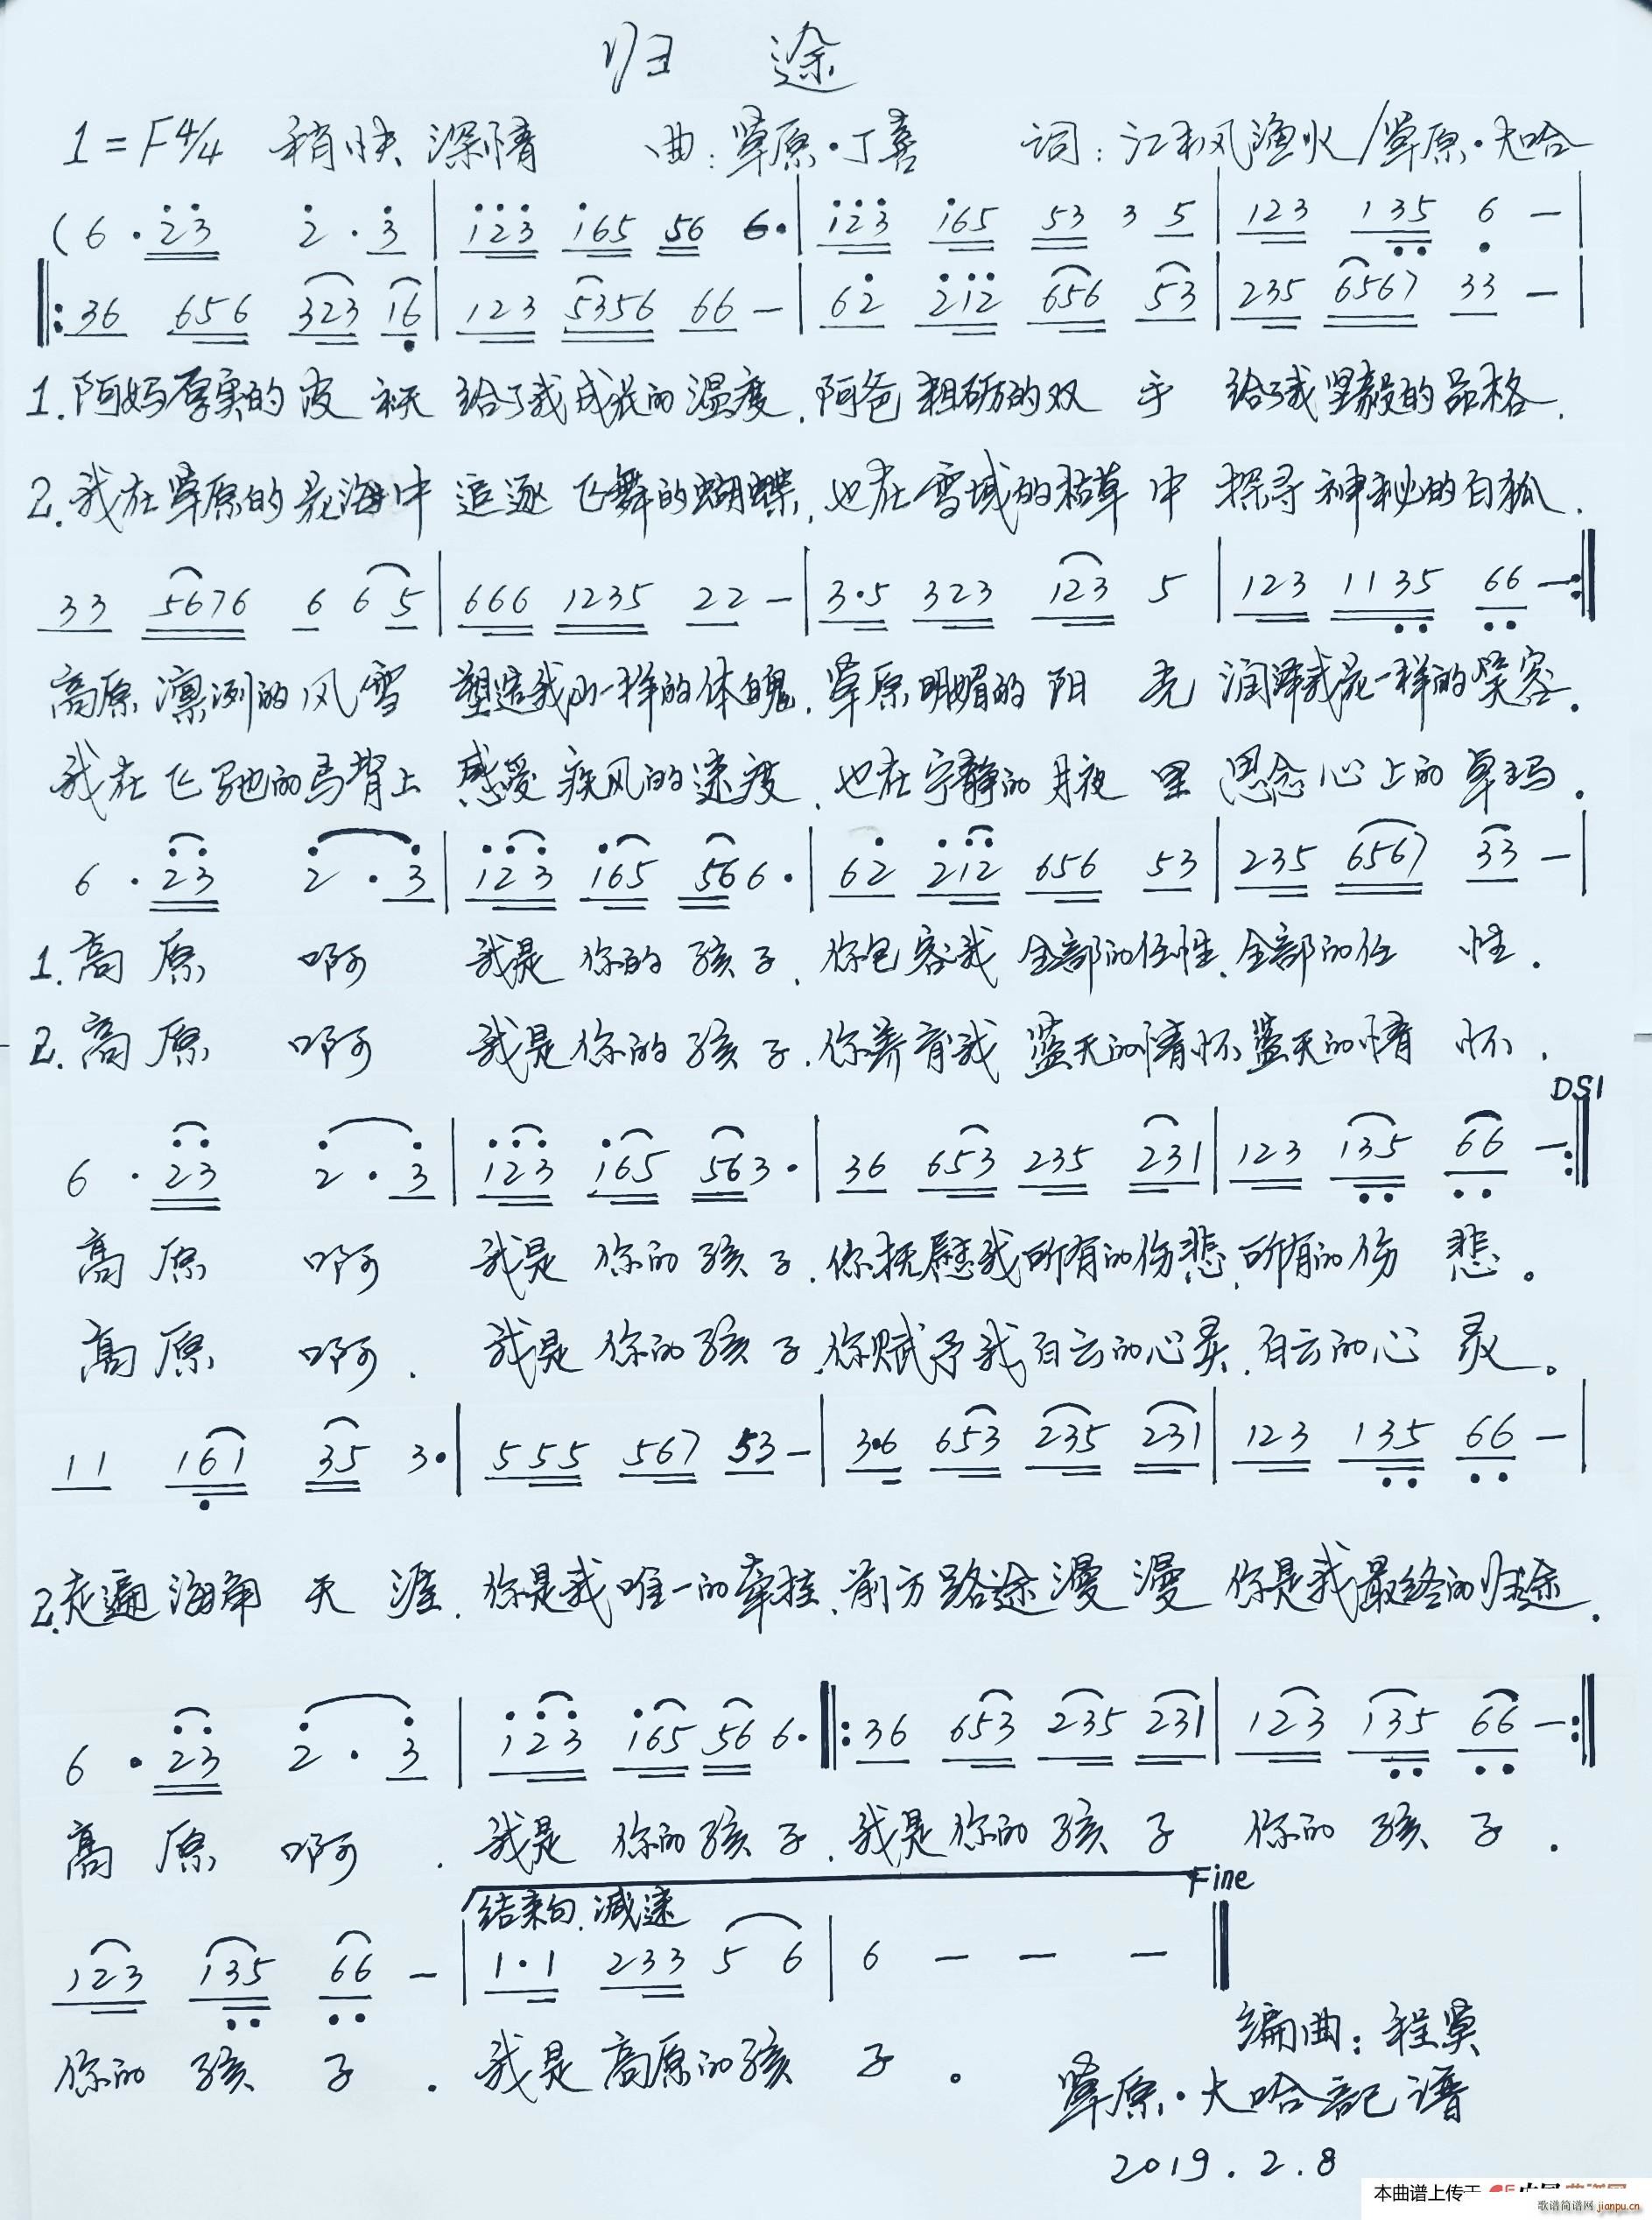 归 途
1=F4/4 稍快 深情 曲:草原·丁喜 词:江枫渔火/草原·大哈
(6·23 2·3|123 165 56 6·|123 165 53 3 5|123 135 6 —|
‖:36 656 323 16|123 5356 66 —|62 212 656 53|235 6567 33 —|
1.阿妈厚实的皮袄 给了我成长的温度,阿爸粗砺的双 手 给了我坚毅的品格.
2.我在草原的花海中 追逐飞舞的蝴蝶,也在雪域的枯草中 探寻神秘的白狐.
33 5676 6 6 5|666 1235 22 —|3·5 323 123 5|123 1135 66 —:‖
高原凛冽的风雪 塑造我山一样的体魄,草原明媚的阳 光 润泽我花一样的笑容.
我在飞驰的马背上 感受疾风的速度,也在宁静的月夜里 思念心上的卓玛.
6·23 2·3|123 165 56 6·|62 212 656 53|235 6567 33 —|
1.高原 啊 我是你的孩子,你包容我全部的任性,全部的任 性.
2.高原 啊 我是你的孩子,你养育我蓝天的情怀,蓝天的情 怀.
DS1
6·23 2·3|123 165 56 3·|36 653 235 231|123 135 66 —:‖
高原 啊 我是你的孩子,你抚慰我所有的伤悲,所有的伤 悲。
高原 啊. 我是你的孩子,你赋予我白云的心灵,白云的心 灵。
11 161 35 3·|555 567 53 —|3·6 653 235 231|123 135 66 —|
2.走遍海角天涯,你是我唯一的牵挂,前方路途漫漫 你是我最终的归途.
6·23 2·3|123 165 56 6·‖:36 653 235 231|123 135 66 —:‖
高原 啊. 我是你的孩子,我是你的孩子 你的孩子.
结束句.减速 Fine
123 135 66 —|1·1 233 5 6|6 — — —‖
你的孩子. 我是高原的孩 子。
编曲:程昊
草原·大哈記谱
2019.2.8
本曲谱上传于
歌谱简谱网 jianpu.cn